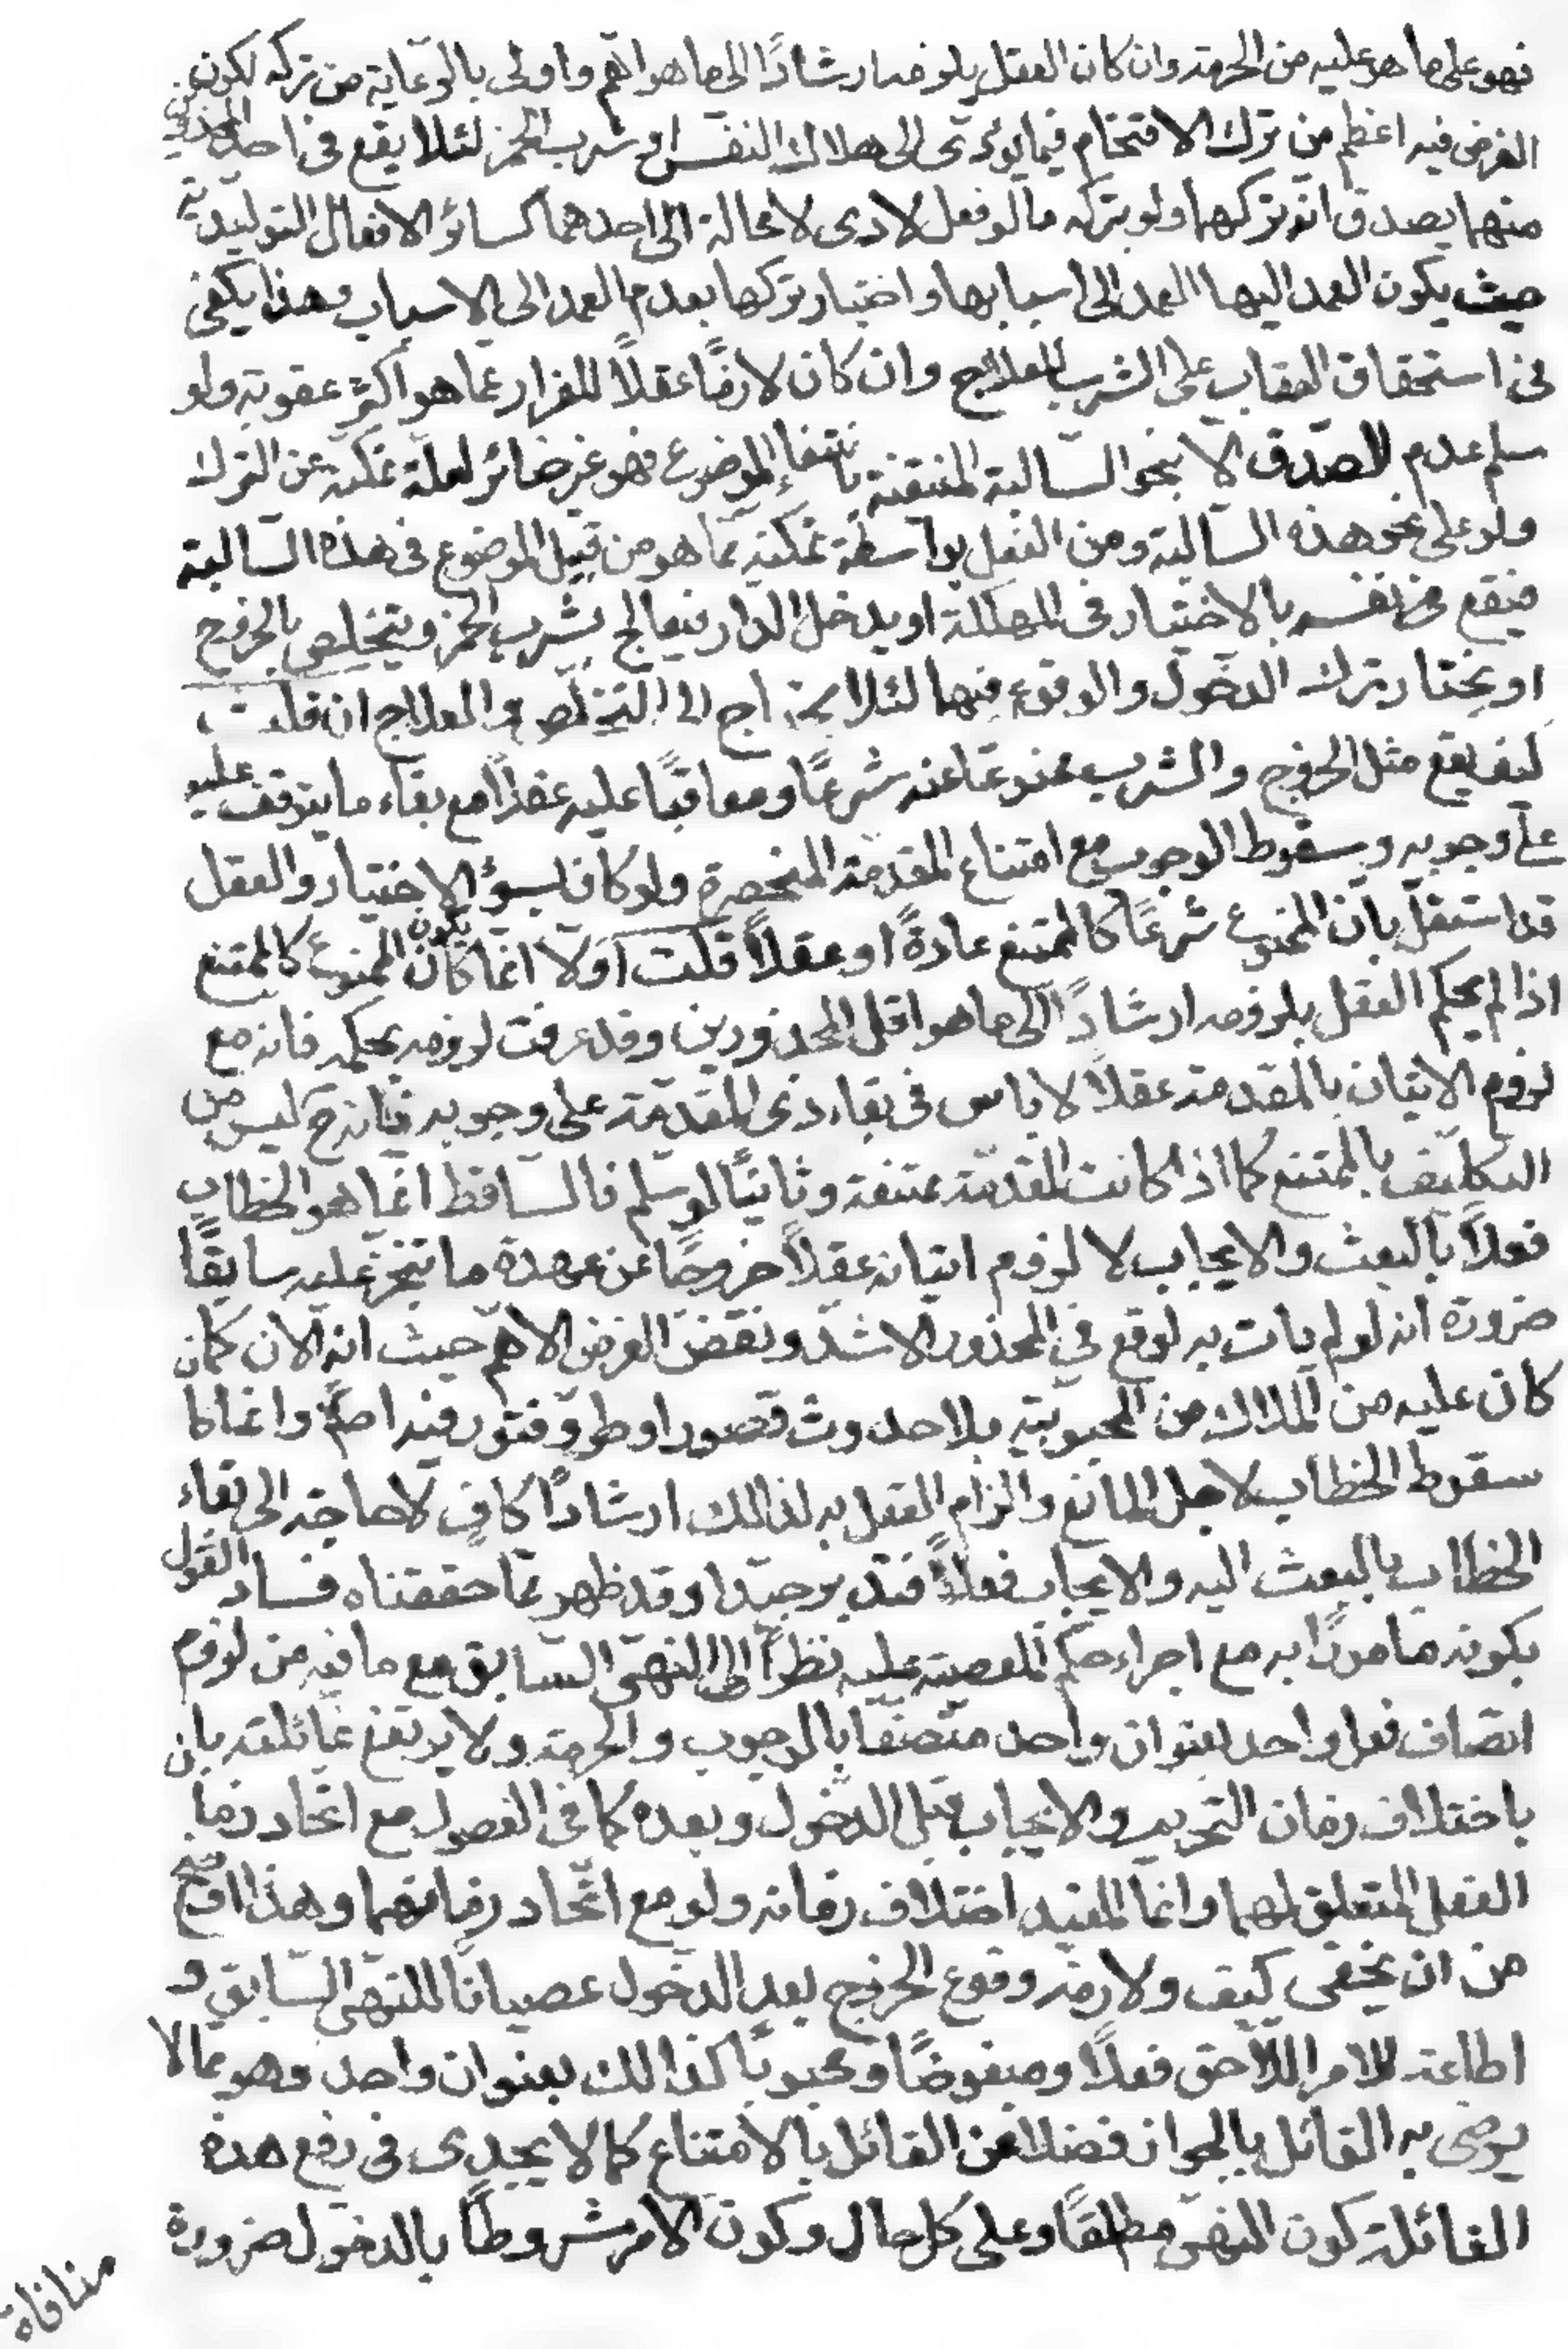 فهو على ما هو عليه من الحرمة وان كان العقل يلزمه ارشادًا الى ما هو اهم واولى بالرعاية من تركه لكون
الغرض فيه اعظم من ترك الاقتحام فيما يؤدى الى هلاك النفس او شرب الخمر لئلا يقع فى احد المحذورين
منهما يصدق انه تركهما ولو بتركه ما لو فعل لادى لا محالة الى احدهما كسائر الافعال التوليدية
حيث يكون العمد اليها العمد الى اسبابها واختيار تركها بعدم العمد الى الاسباب وهذا يكفى
فى استحقاق العقاب على الشرب للعلاج وان كان لازمًا عقلاً للفرار عما هو اكثر عقوبة ولو
سلم عدم الصدق الا بنحو السالبة المنتفية بانتفاء الموضوع فهو غير ضائر لعلة تمكنه عن الترك
ولو على نحو هذه السالبة ومن الفعل بواسطة تمكنه مما هو من قبيل الموضوع فى هذه السالبة
فيقع فى نفسه بالاختيار فى المهلكة او يدخل الدار فيعالج بشرب الخمر ويتخلص بالخروج
او يختار ترك الدخول والوقوع فيهما لئلا يحتاج الى التخلص والعلاج ان قلت
كيف يقع مثل الخروج والشرب ممنوعًا عنه شرعًا ومعاقبًا عليه عقلاً مع بقاء ما يتوقف عليه
على وجوبه وسقوط الوجوب مع امتناع المقدمة المنحصرة ولو كان بسوء الاختيار والعقل
قد استقل بان الممنوع شرعًا كالممتنع عادةً او عقلاً قلت اولا انما كان يكون الممنوع كالممتنع
اذا لم يحكم العقل بلزومه ارشادًا الى ما هو اقل المحذورين وقد عرفت لزومه بحكمه فانه مع
لزوم الاتيان بالمقدمة عقلاً لا باس فى بقاء ذى المقدمة على وجوبه فانه ح ليس من
التكليف بالممتنع كما اذا كانت المقدمة ممتنعة وثانيًا لو سلم فالساقط انما هو الخطاب
فعلاً بالبعث والايجاب لا لزوم اتيانه عقلاً خروجًا عن عهدة ما تنجز عليه سابقًا
ضرورة انه لو لم يات به لوقع فى المحذور الاشد ونقض الغرض الاهم حيث انه الان كما
كان عليه من الملاك من المحبوبية بلا حدوث قصور او طرو فتور فيه اصلاً وانما كا
سقوط الخطاب لاجل المانع والزام العقل به لذالك ارشادًا كاف لا حاجة الى بقاء
الخطاب بالبعث اليه والايجاب فعلاً فتدبر جيدا وقد ظهر مما حققناه فساد القول
بكونه مامورًا به مع اجراء حكم المعصية عليه نظرًا الى النهى السابق مع ما فيه من لزوم
اتصاف فعل واحد بعنوان واحد متصفا بالوجوب والحرمة ولا يرتفع غائلته بان
باختلاف زمان التحريم والايجاب قبل الدخول وبعده كما فى الفصول مع اتحاد زما
الفعل المتعلق لهما وانما المفيد اختلاف زمانه ولو مع اتحاد زمانهما وهذا اوضح
من ان يخفى كيف ولازمه وقوع الخروج بعد الدخول عصيانًا للنهى السابق و
اطاعة للامر اللاحق فعلاً ومبغوضًا ومحبوبًا كذالك بعنوان واحد وهو مما لا
يرضى به القائل بالجواز فضلا عن القائل بالامتناع كما لا يجدى فى رفع هذه
الغائلة كون النهى مطلقًا وعلى كل حال وكون الامر مشروطًا بالدخول ضرورة
منافاة